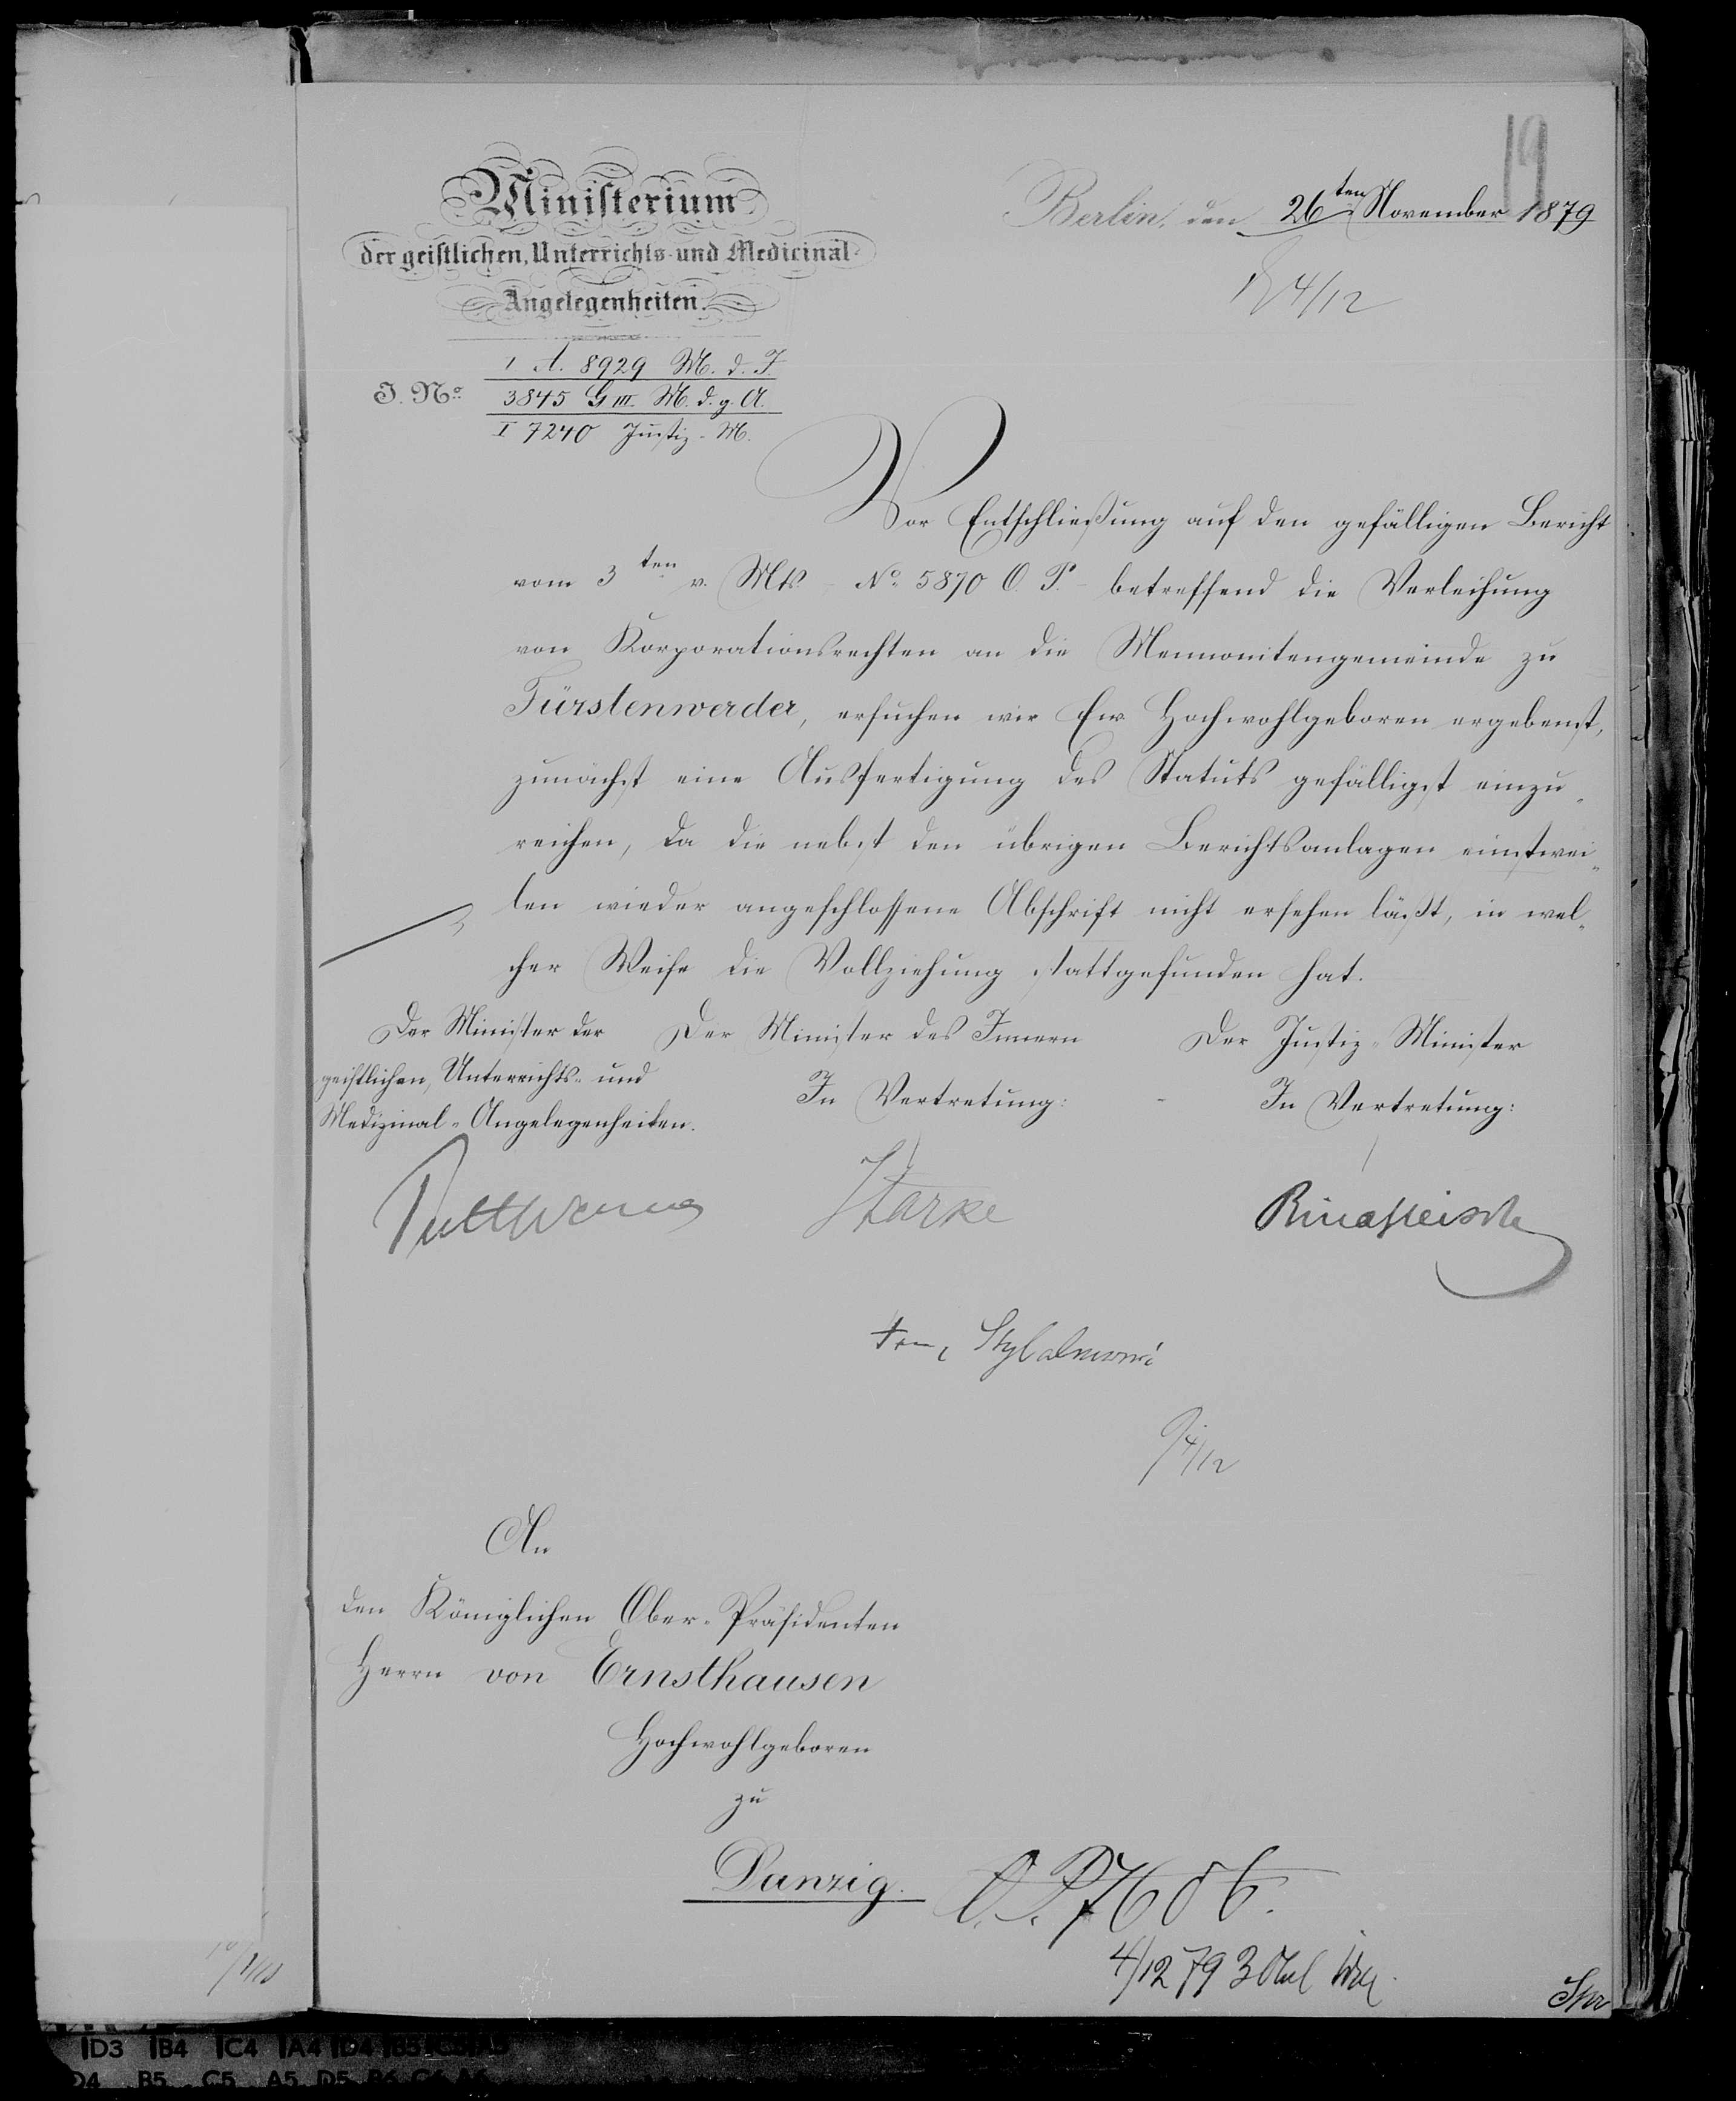 19
Ministerium
der geistlichen, Unterrichts- und Medicinal-
Angelegenheiten.
Berlin, den 26ten November 1879
4/12
J. No.
1 A. 8929 M. d. J.
3845 G III. M. d. g. A.
I 7240 Justiz-M.
Vor Entschließung auf den gefälligen Bericht
vom 3ten v. Mts. - No. 5870 O. P. - betreffend die Verleihung
von Korporationsrechten an die Mennonitengemeinde zu
Fürstenwerder, ersuchen wir Ew. Hochwohlgeboren ergebenst,
zunächst eine Ausfertigung des Statuts gefälligst einzu-
reichen, da die nebst den übrigen Berichtsanlagen einstwei-
len wieder angeschlossene Abschrift nicht ersehen läßt, in wel-
cher Weise die Vollziehung stattgefunden hat.
Der Minister der
geistlichen, Unterrichts- und
Medizinal-Angelegenheiten.
Der Minister des Innern
In Vertretung:
Der Justiz-Minister
In Vertretung:
Puttkamer
Starke
Rindfleisch
4/12
An
den Königlichen Ober-Präsidenten
Herrn von Ernsthausen
Hochwohlgeboren
zu
Danzig.
O. P. 7686.
4/12 79 3
D3 B4 C4 A4 D4 B5 C5 A5
D4 B5 C5 A5 D5 B6 C6 A6